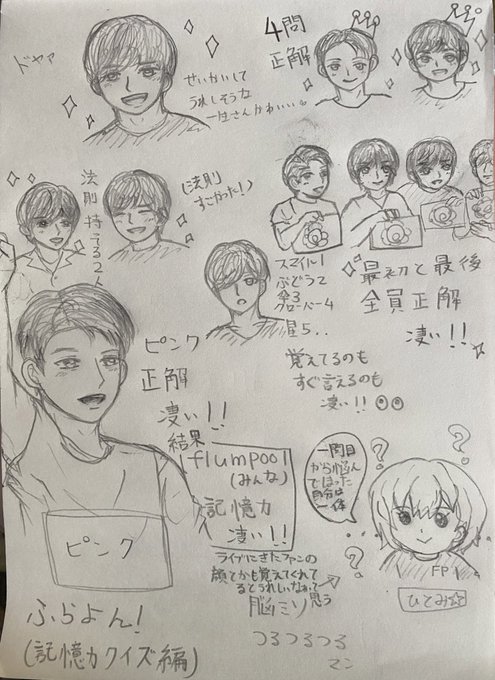 ドヤァ
せいかいして
うれしそうな
一生さんかわいい。
4問
正解
法則持てる2人
(法則
すごかった!)
スマイル1
ぶどう2
傘3
クローバー4
星5..
最初と最後
全員正解
凄い!!
覚えてるのも
すぐ言えるのも
凄い!!
ピンク
正解
凄い!!
結果
flumpool
(みんな)
記憶力
凄い!!
一問目
から悩ん
でしまった
自分は
一体
ピンク
ライブにきたファンの
顔とかも覚えてくれて
るとうれしいなぁって
思う
脳ミソ
つるつるつる
マン
FP
ひとみ☆
ふらよん!
(記憶力クイズ編)